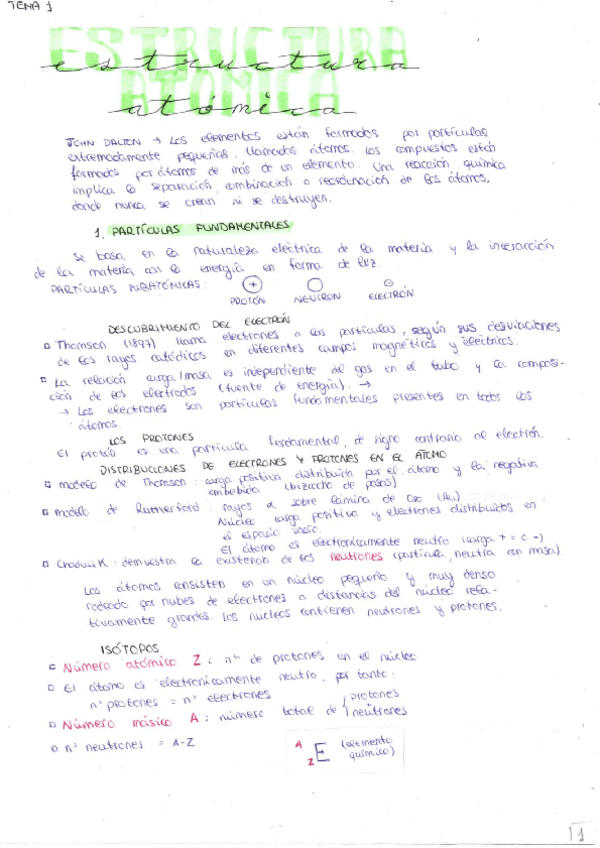 TEMA 1
ESTRUCTURA
estructura
ATÓMICA
atómica
JOHN DALTON → Los elementos están formados por partículas
extremadamente pequeñas, llamados átomos. Los compuestos están
formados por átomos de más de un elemento. Una reacción química
implica la separación, combinación o reordenación de los átomos,
donde nunca se crean ni se destruyen.
1. PARTÍCULAS FUNDAMENTALES
Se basa en la naturaleza eléctrica de la materia y la interacción
de la materia con la energía en forma de luz.
PARTÍCULAS SUBATÓMICAS:
+ -
PROTÓN NEUTRÓN ELECTRÓN
DESCUBRIMIENTO DEL ELECTRÓN
Thomson (1897) llama electrones a las partículas, según sus desviaciones
de los rayos catódicos en diferentes campos magnéticos y eléctricos.
La relación carga/masa es independiente del gas en el tubo y la composi-
ción de los electrodos (fuente de energía). →
→ Los electrones son partículas fundamentales presentes en todos los
átomos.
LOS PROTONES
El protón es una partícula fundamental, de signo contrario al electrón.
DISTRIBUCIONES DE ELECTRONES Y PROTONES EN EL ÁTOMO
modelo de Thomson: carga positiva distribuida por el átomo y la negativa
embebida (bizcocho de pasas)
modelo de Rutherford: rayos α sobre lámina de oro (Au)
Núcleo carga positiva y electrones distribuidos en
el espacio vacío.
El átomo es electronicamente neutro (carga + = c -)
Chadwick: demuestra la existencia de los neutrones (partícula neutra con masa)
Los átomos consisten en un núcleo pequeño y muy denso
rodeado por nubes de electrones a distancias del núcleo rela-
tivamente grandes. Los núcleos contienen neutrones y protones.
ISÓTOPOS
Número atómico Z: nº de protones en el núcleo
El átomo es electronicamente neutro, por tanto:
nº protones = nº electrones
Número másico A: número total de { protones
neutrones
nº neutrones = A-Z
A
Z E (elemento
químico)
1